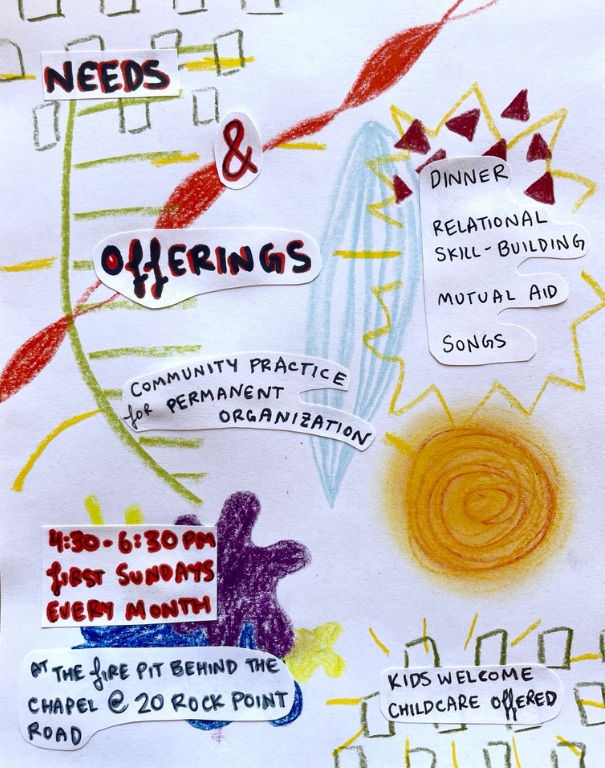 NEEDS
&
OffERINGS
DINNER
RELATIONAL
SKILL-BUILDING
MUTUAL AID
SONGS
COMMUNITY PRACTICE
for PERMANENT
ORGANIZATION
4:30-6:30 PM
fIRST SUNDAYS
EVERY MONTH
AT THE fIRE PIT BEHIND THE
CHAPEL @ 20 ROCK POINT
ROAD
KIDS WELCOME
CHILDCARE OffERED